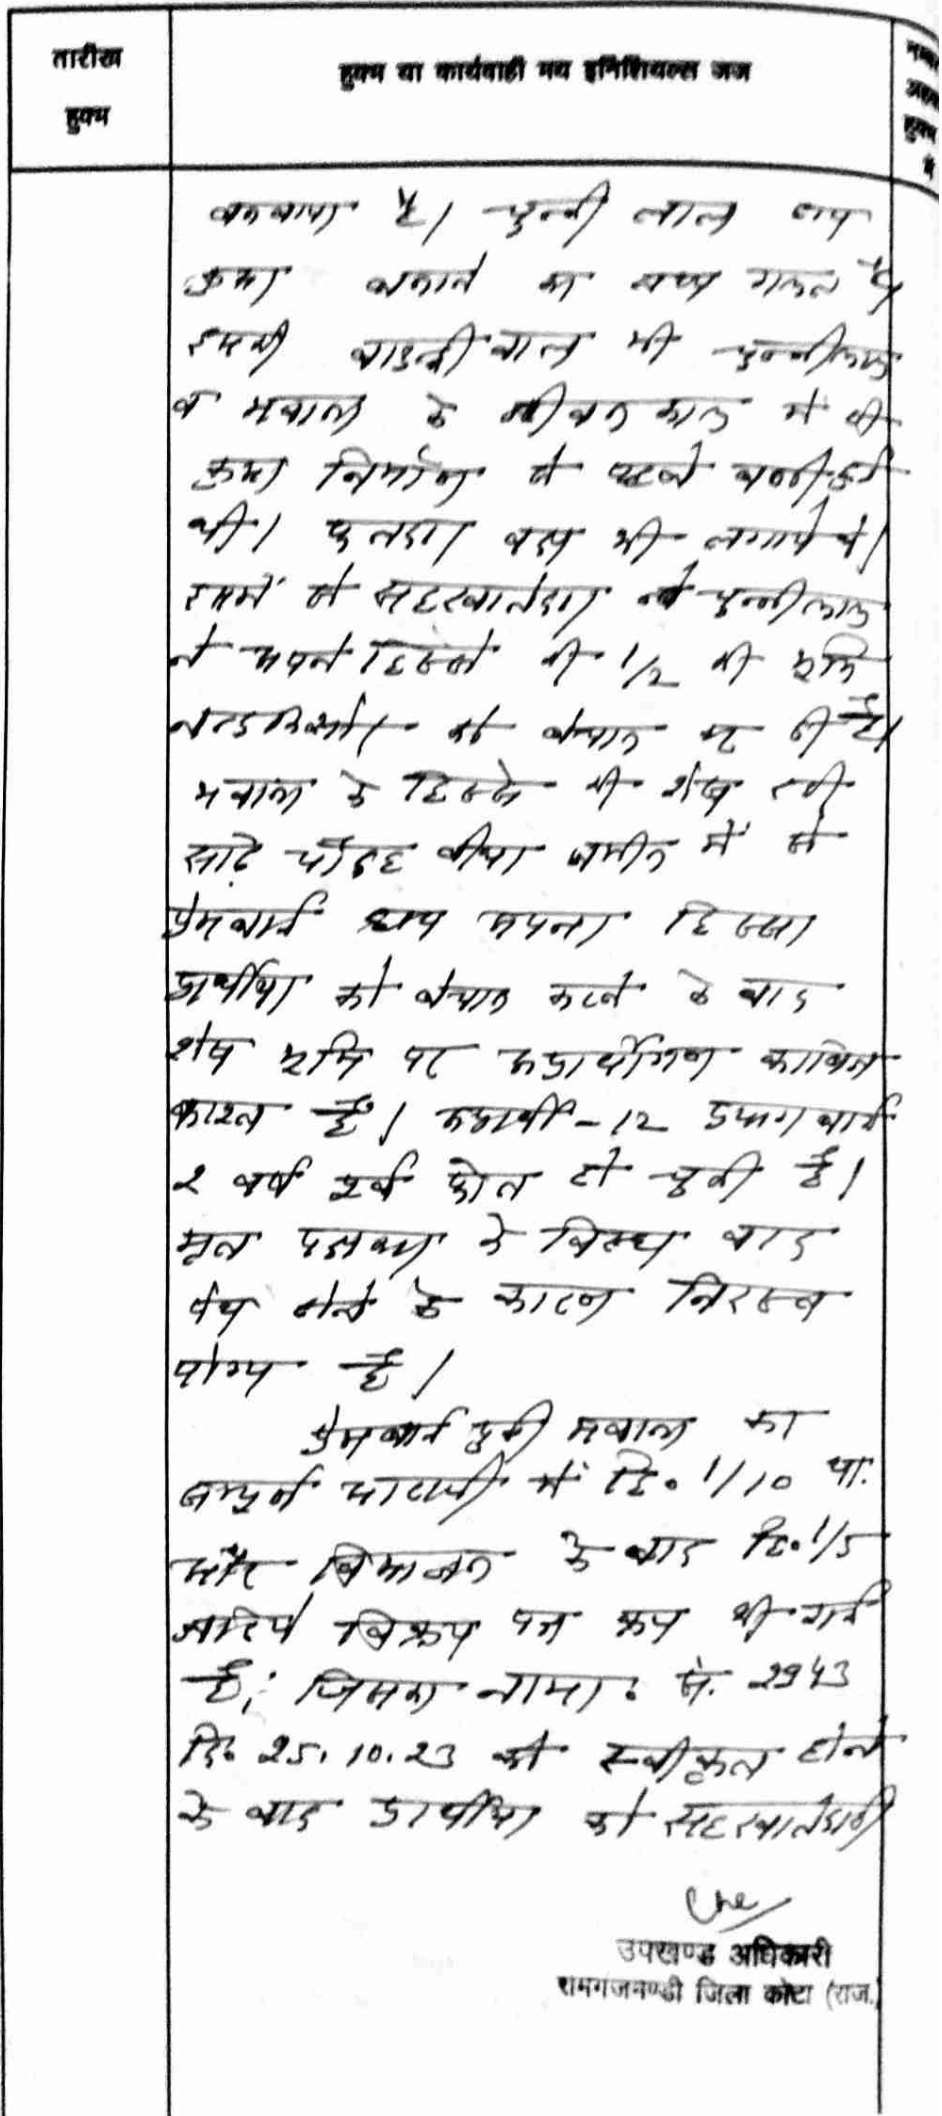 तारीख
हुक्म
हुक्म या कार्यवाही मय इनिशियल्स जज
हुक्म
में
बनवाया है। चुन्नी लाल द्वारा
कुआ बनाने का तथ्य गलत है।
इसकी बाउन्ड्रीवाल भी चुन्नीलाल
व भवाना के जीवन काल में ही
कुआ निर्माण से पहले बनी हुई
थी। फलदार वृक्ष भी लगाये थे।
इसमें से सहखातेदार चुन्नीलाल
ने अपने हिस्से की 1/2 की भूमि
नन्दकिशोर को बेचान कर दी है।
भवाना के हिस्से की शेष रही
साढ़े चौदह बीघा जमीन में से
प्रेमबाई द्वारा अपना हिस्सा
प्रार्थीया को बेचान करने के बाद
शेष भूमि पर अप्रार्थीगण काबिज
काश्त हैं। अप्रार्थी-12 बाई
2 वर्ष पूर्व फोत हो चुकी है।
मृत पक्षकार के विरूध वाद
पेश होने के कारण निरस्त
योग्य है।
प्रेमबाई पुत्री भवाना का
सम्पूर्ण आराजी में हि. 1/10 था.
और विभाजन के बाद हि. 1/5
जरिये विक्रय पत्र क्रय की गई
है; जिसका नामा. सं. 2943
दि. 25.10.23 को स्वीकृत होने
के बाद प्रार्थीया को सहखातेदारी
उपखण्ड अधिकारी
रामगंजमण्डी जिला कोटा (राज.)